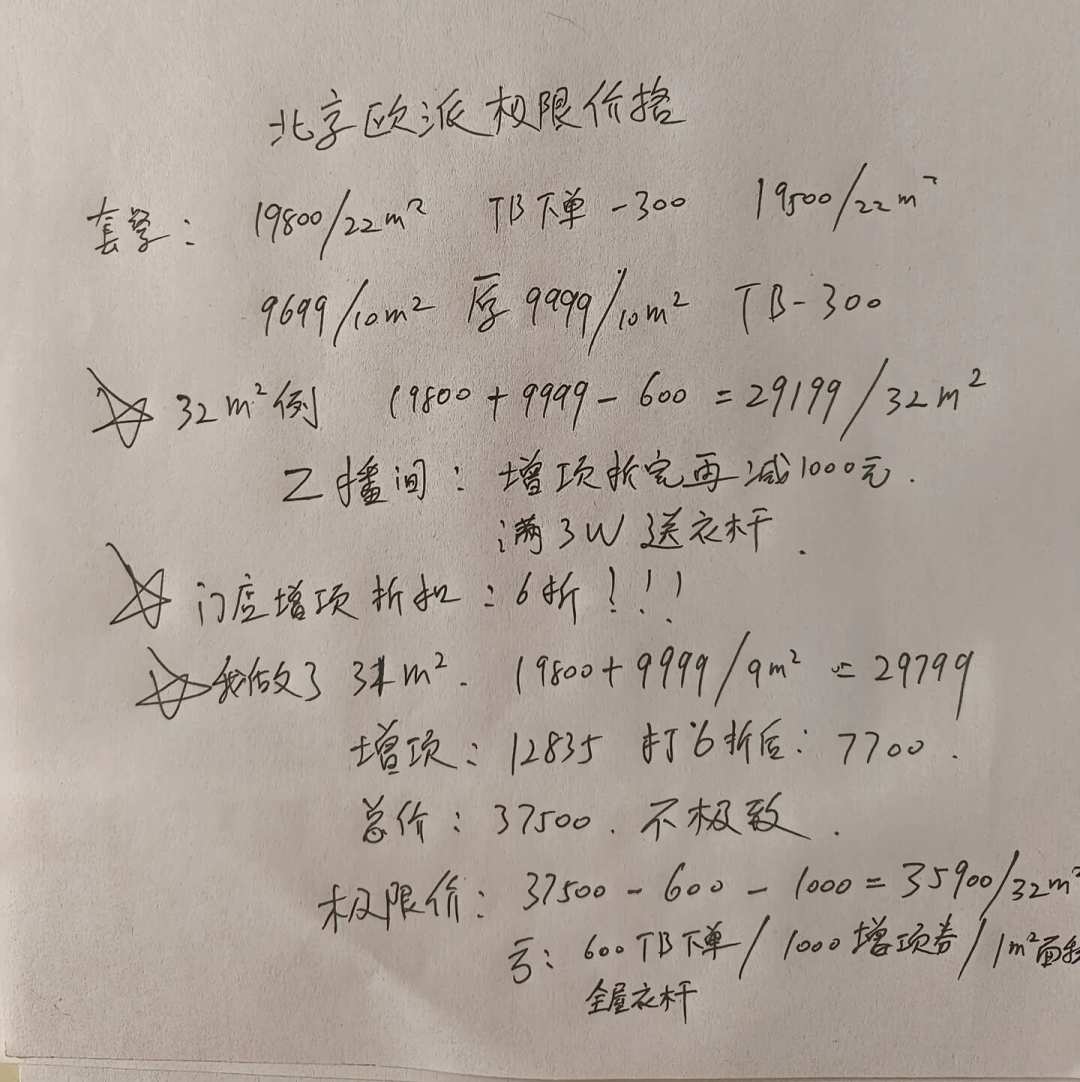 北京欧派极限价格
套餐: 19800/22m² TB下单 -300 19500/22m²
9699/10m² 原9999/10m² TB-300
☆ 32m²例 19800+9999-600=29199/32m²
乙播间: 增项折完再减1000元.
满3W送衣杆.
☆ 门店增项折扣: 6折!!!
☆ 我做了31m². 19800+9999/9m²=29799
增项: 12835 打6折后: 7700.
总价: 37500. 不极致.
极限价: 37500-600-1000=35900/32m²
亏: 600TB下单/1000增项券/1m²面积
全屋衣杆